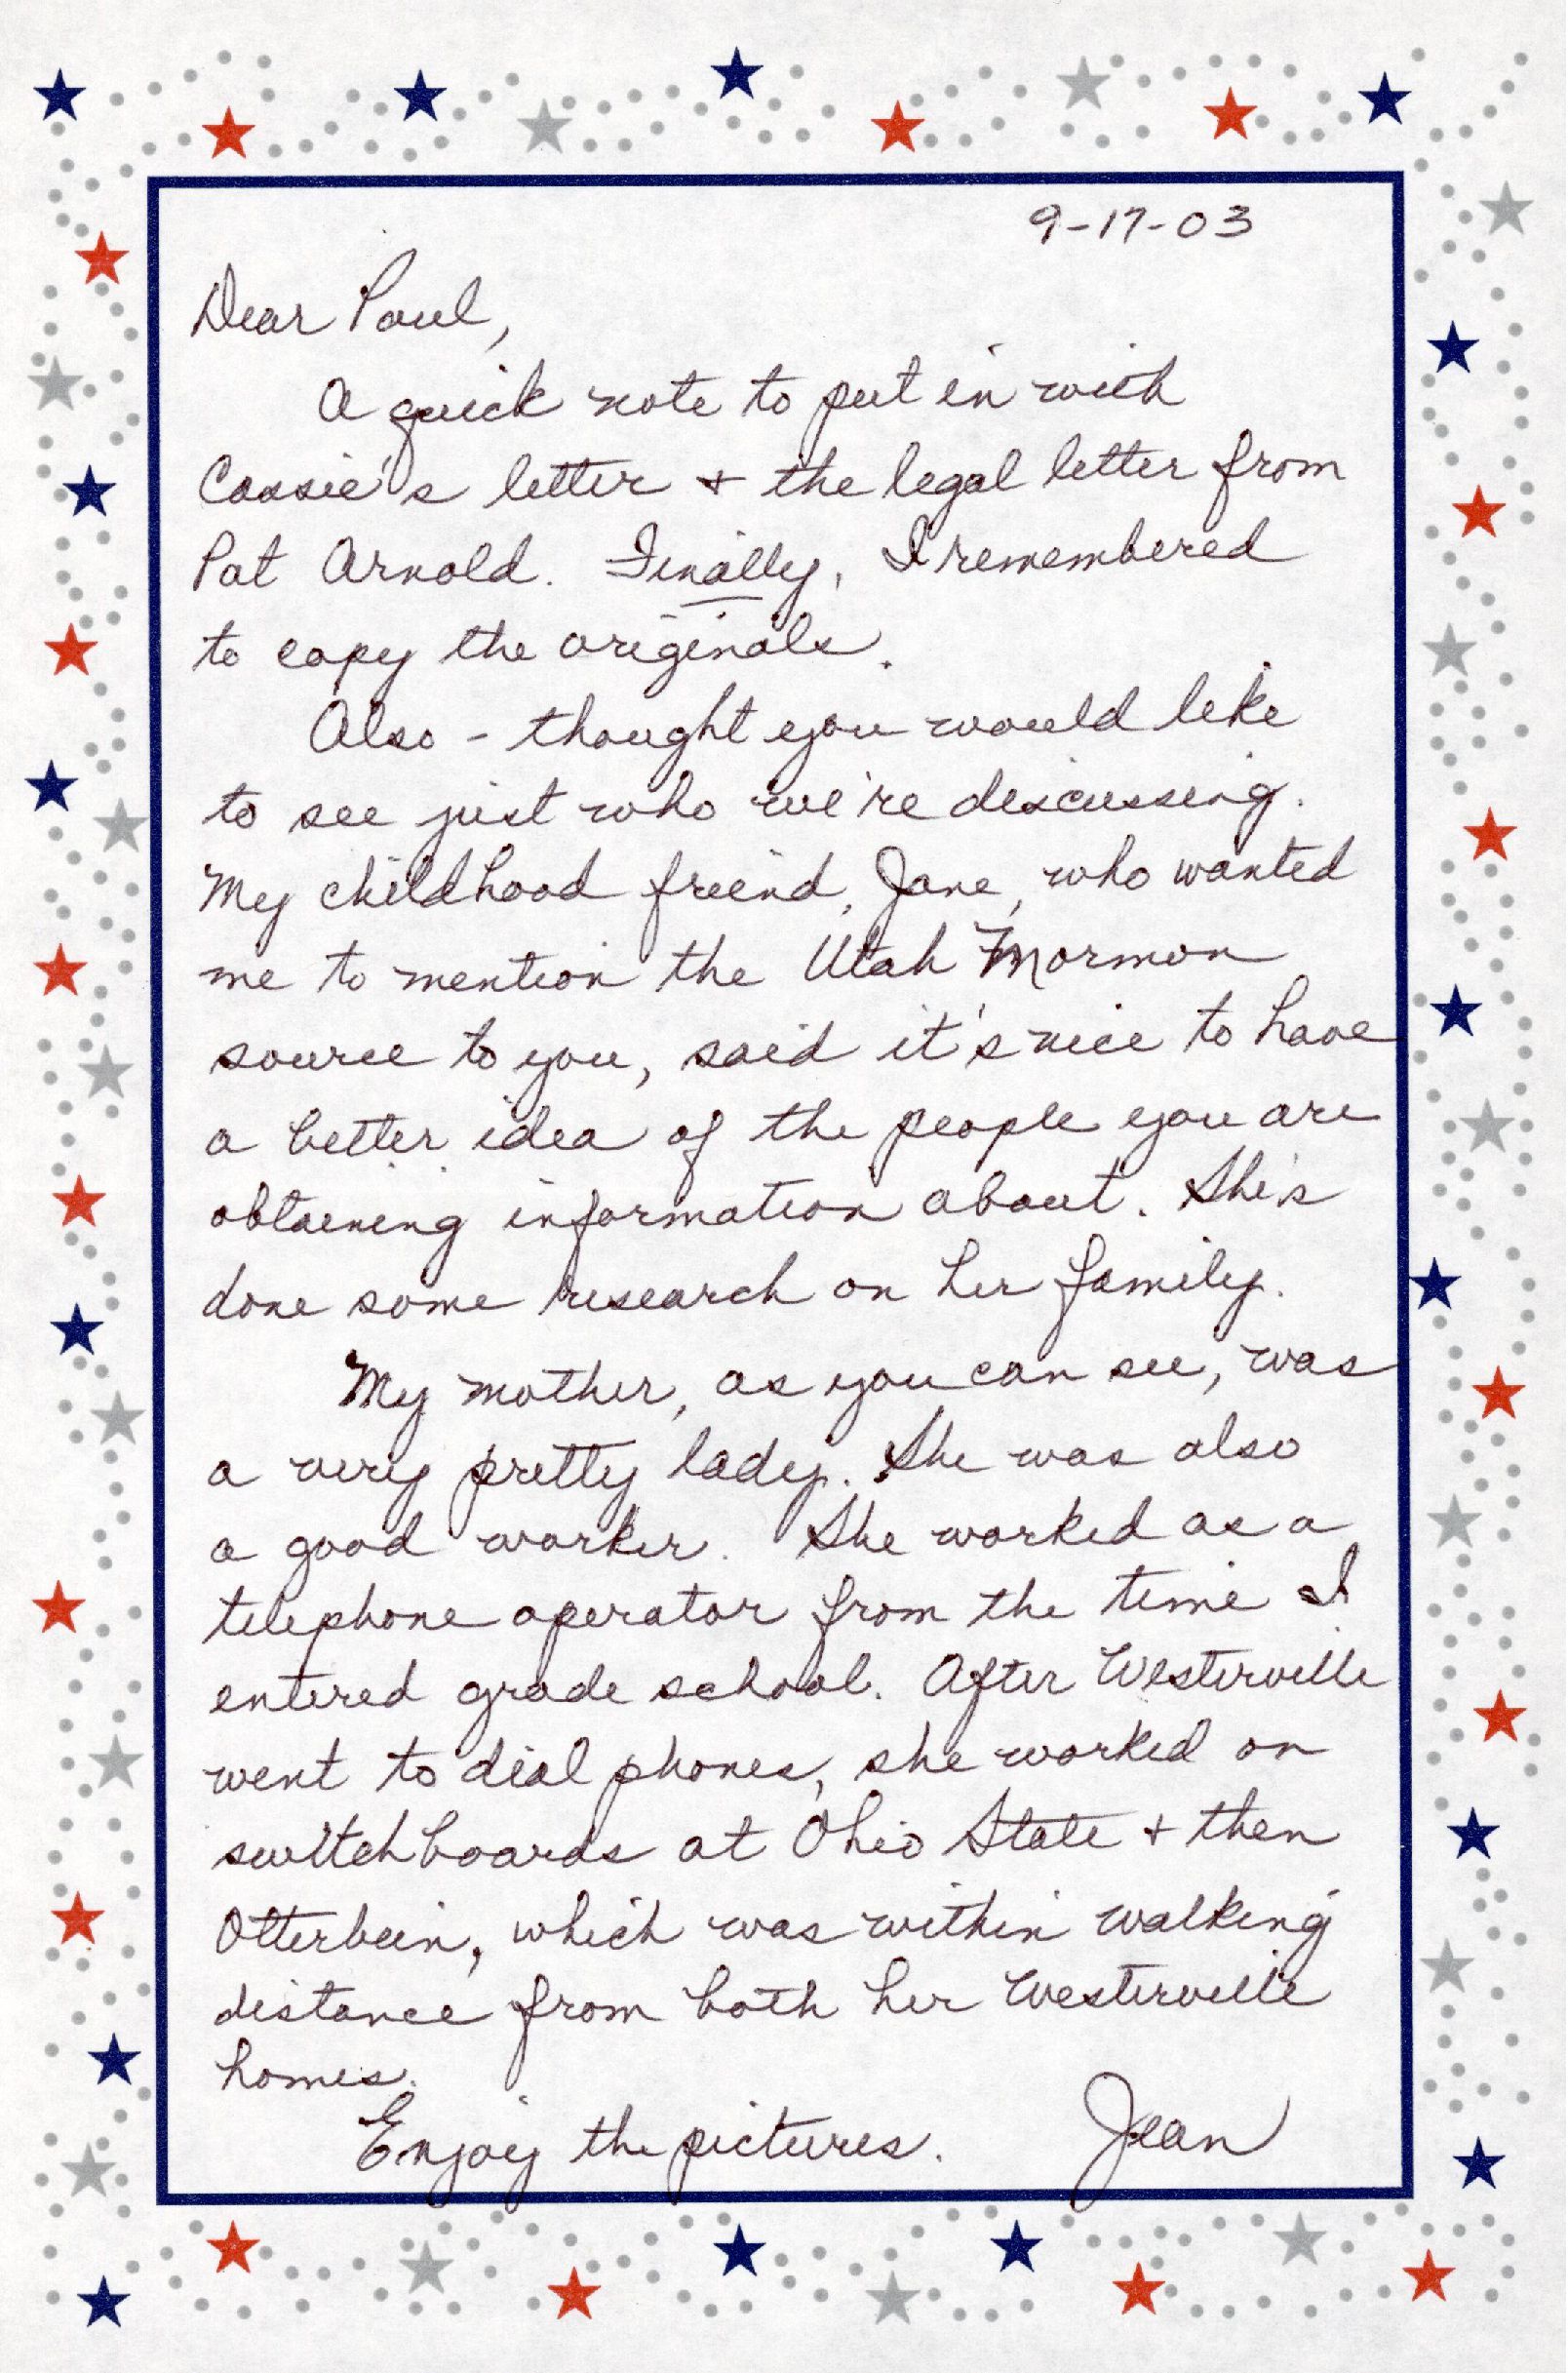 9-17-03
Dear Paul,
A quick note to put in with
Cassie's letter + the legal letter from
Pat Arnold. Finally, I remembered
to copy the originals.
Also - thought you would like
to see just who we're discussing.
My childhood friend, Jane, who wanted
me to mention the Utah Mormon
source to you, said it's nice to have
a better idea of the people you are
obtaining information about. She's
done some research on her family.
My mother, as you can see, was
a very pretty lady. She was also
a good worker. She worked as a
telephone operator from the time I
entered grade school. After Westerville
went to dial phones, she worked on
switchboards at Ohio State + then
Otterbein, which was within walking
distance from both her Westerville
homes.
Enjoy the pictures. Jean